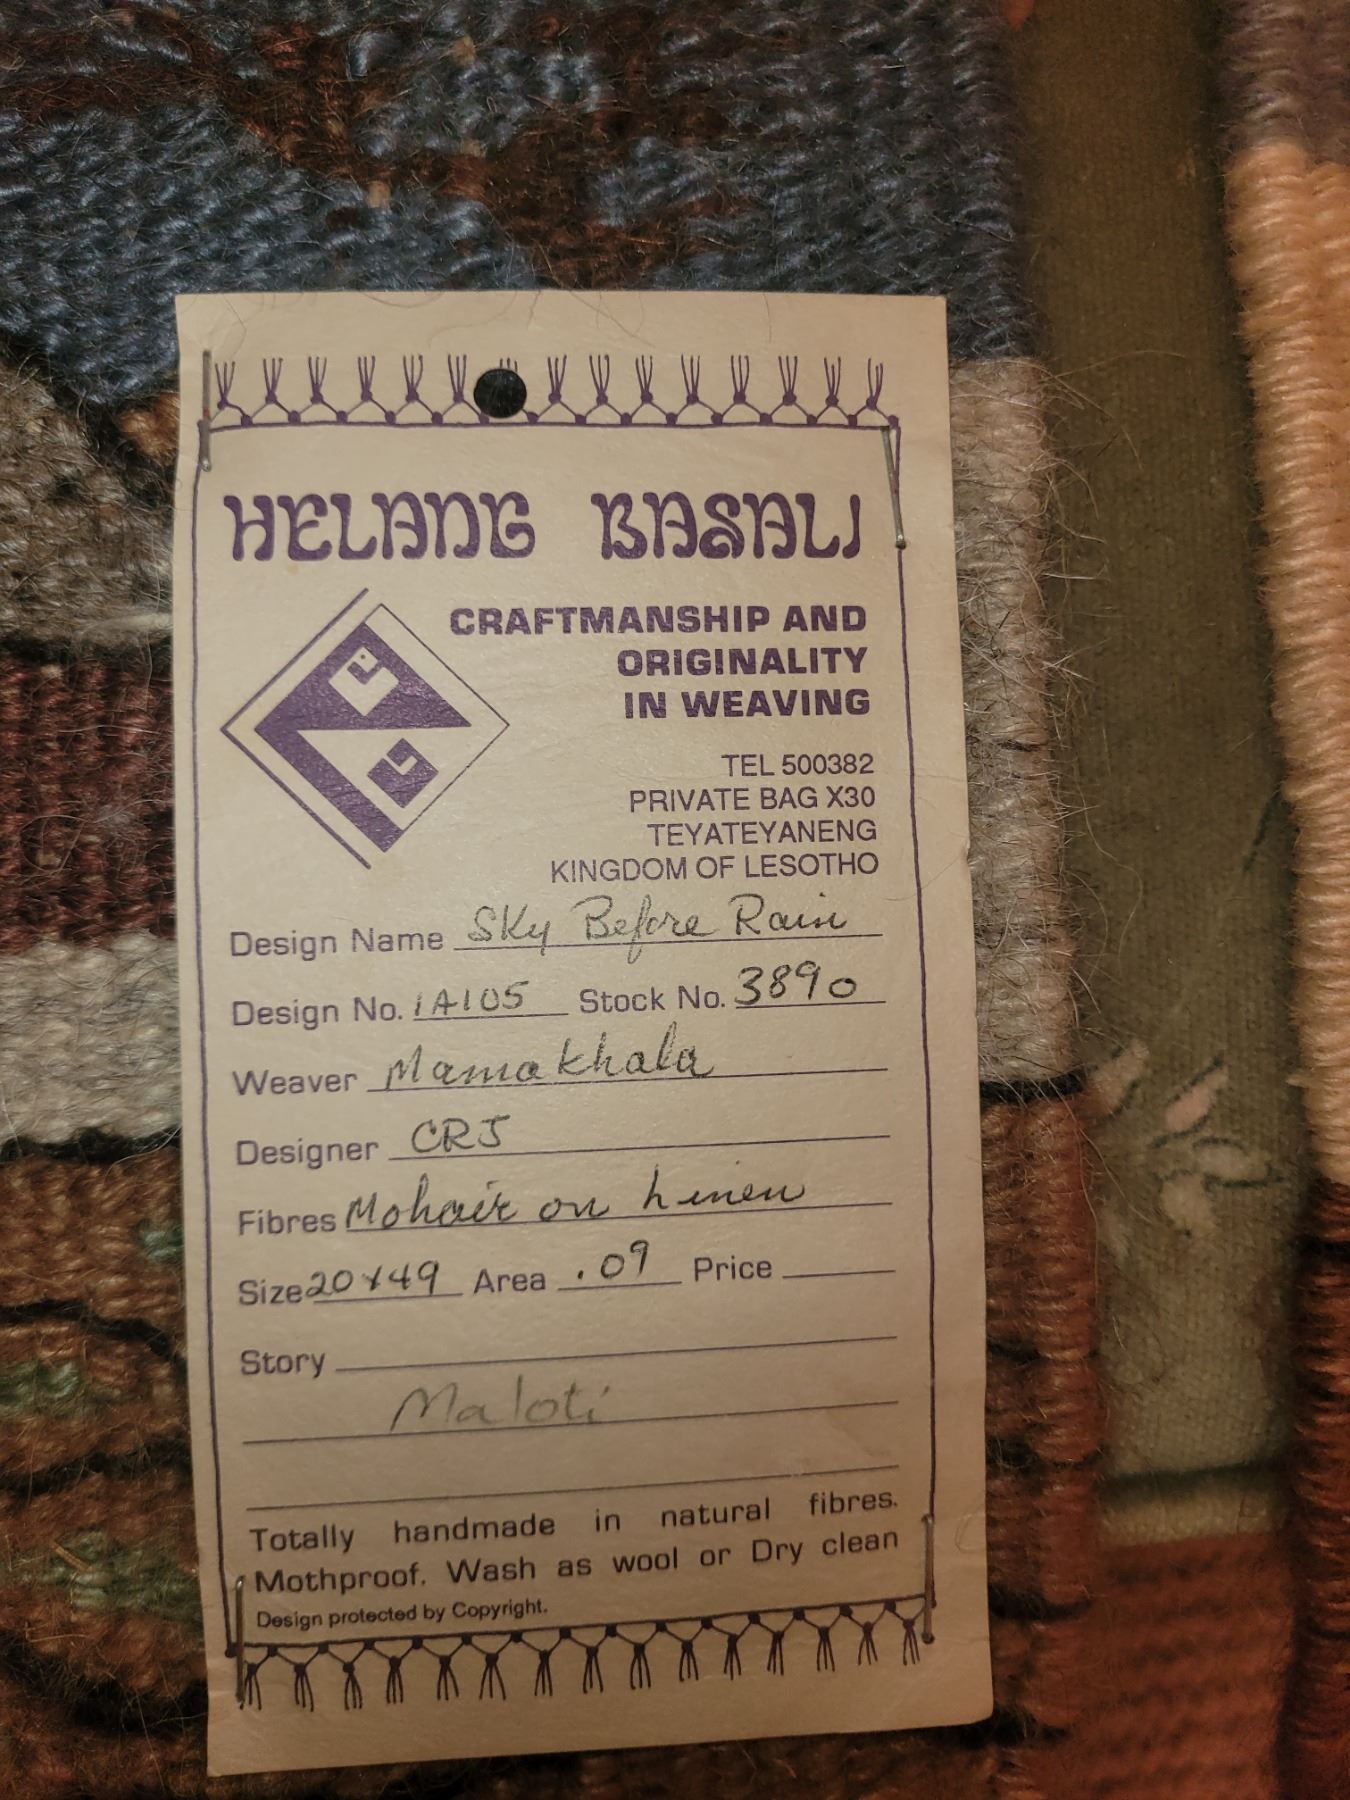 HELANG BASALI
CRAFTMANSHIP AND
ORIGINALITY
IN WEAVING
TEL 500382
PRIVATE BAG X30
TEYATEYANENG
KINGDOM OF LESOTHO
Design Name Sky Before Rain
Design No. 1A105 Stock No. 3890
Weaver Mamakhala
Designer CRJ
Fibres Mohair on Linen
Size 20x49 Area .09 Price
Story
Maloti
Totally handmade in natural fibres.
Mothproof. Wash as wool or Dry clean
Design protected by Copyright.